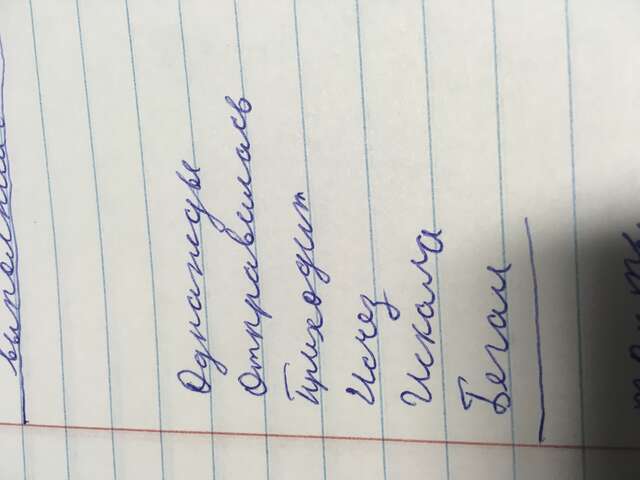 выполнил
Однажды
Отправилась
Приходит
Исчез
Искала
Бегал